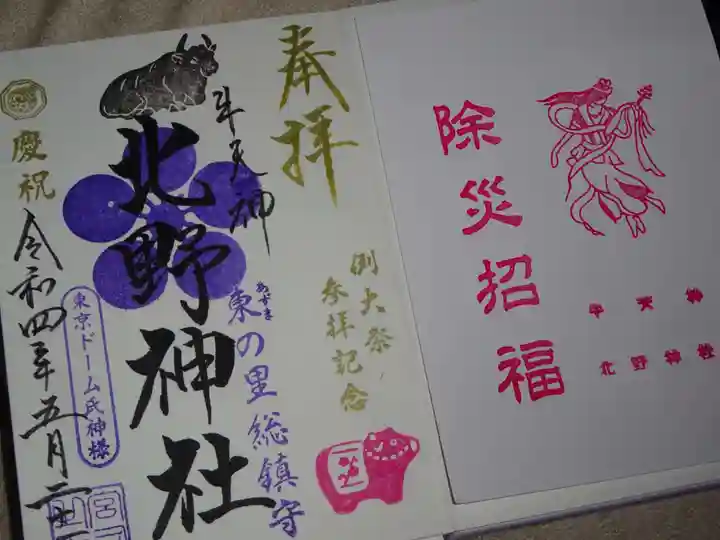 除災招福
牛天神
北野神社
奉拝
例大祭
参拝記念
牛天神
北野神社
東の里総鎮守
あづま
東京ドーム氏神様
慶祝
令和四年五月二